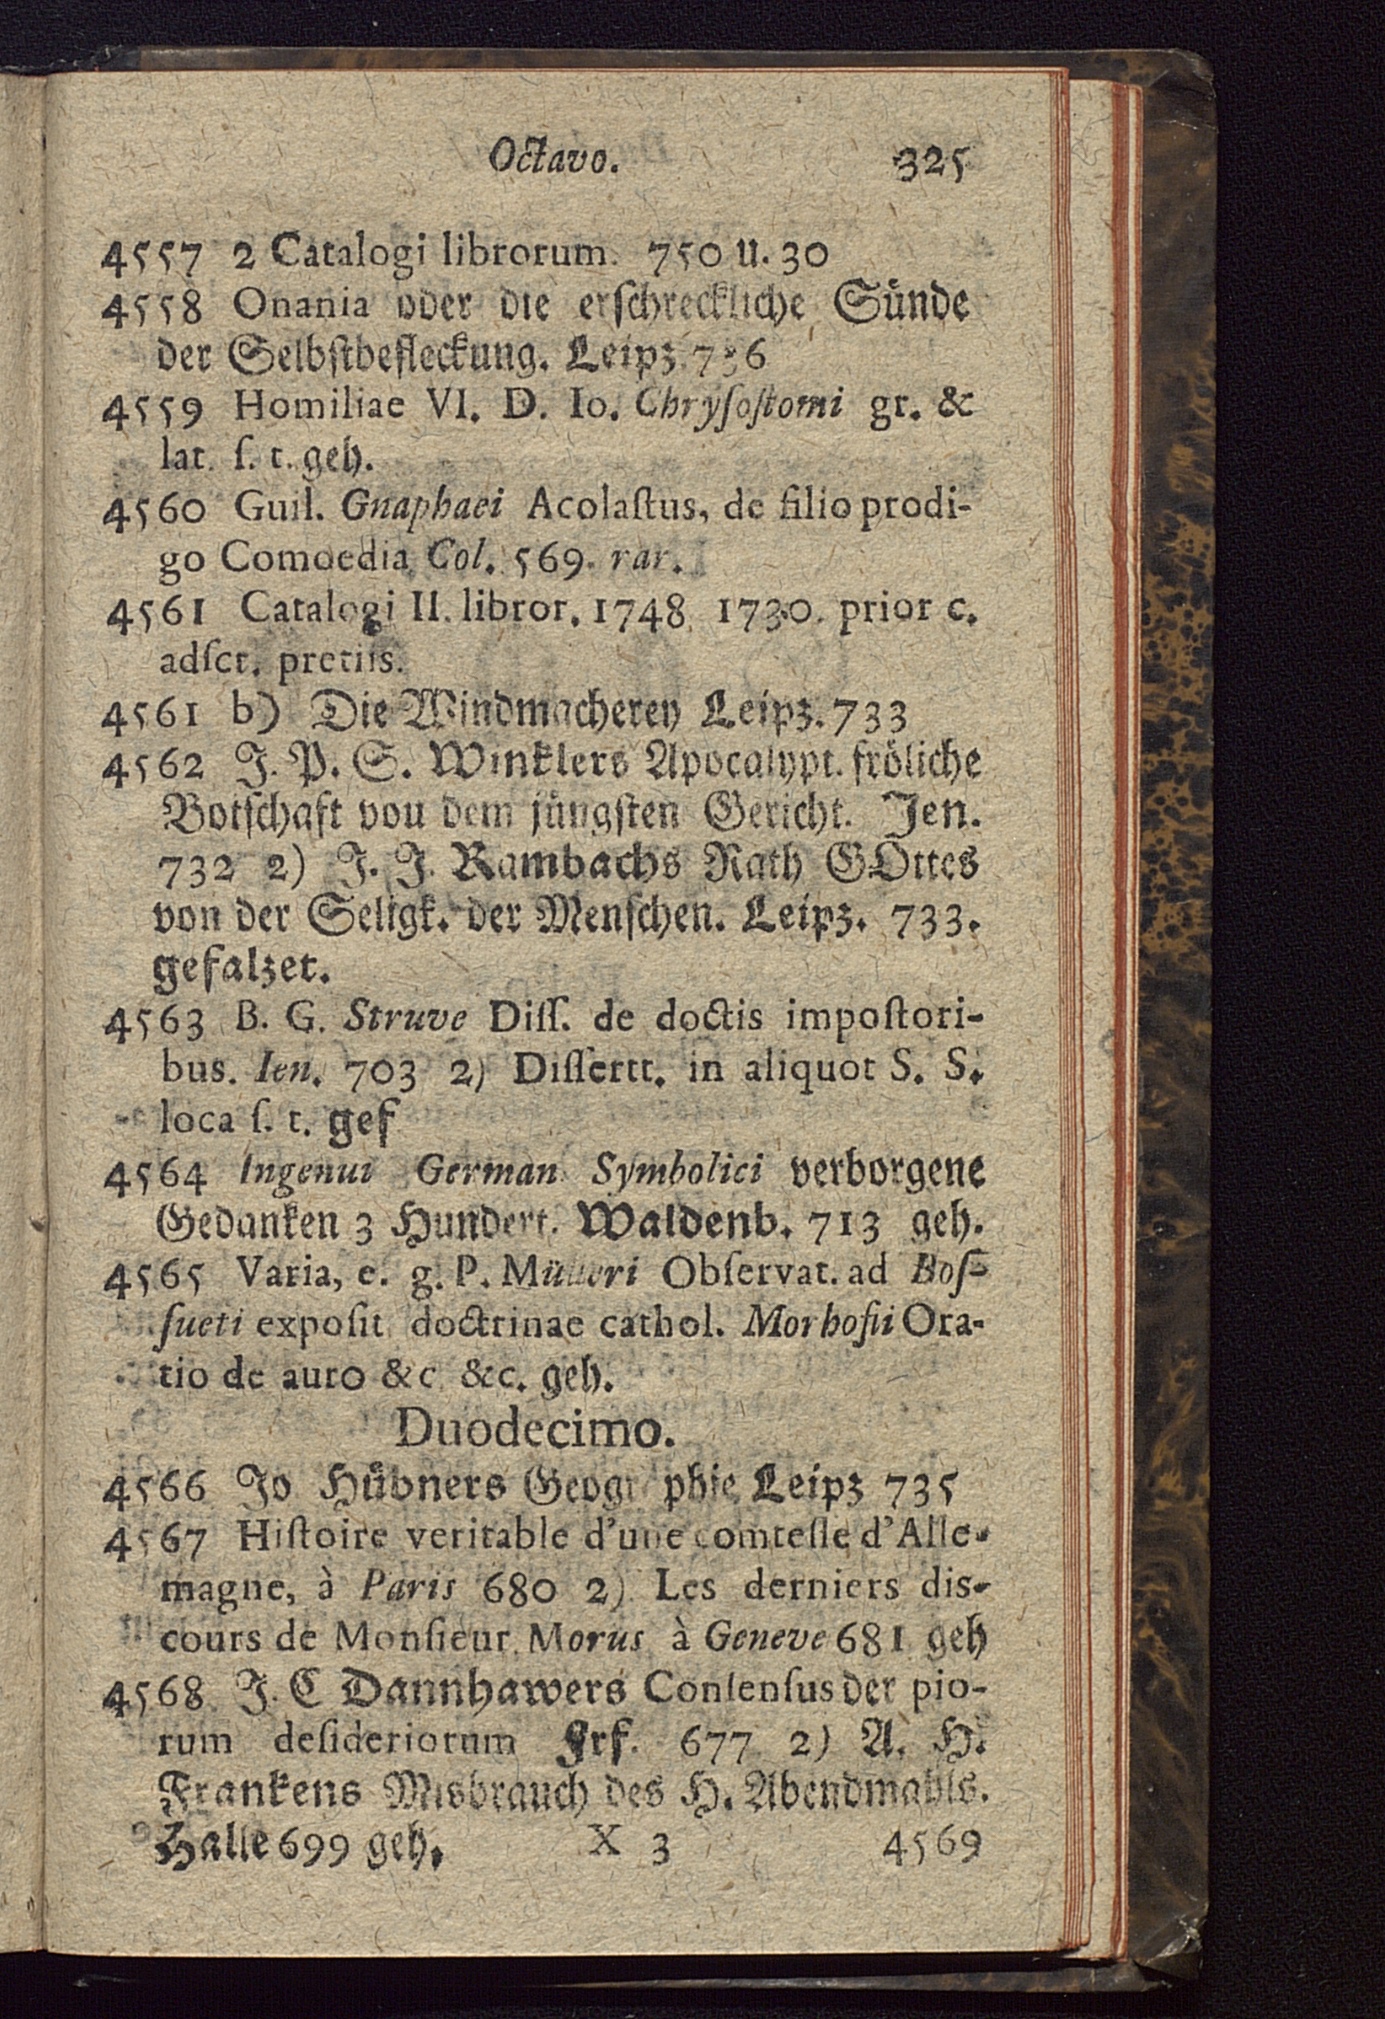 Octavo. 325
4557 2 Catalogi librorum. 750 u. 30
4558 Onania oder die erschreckliche Sünde
der Selbstbefleckung. Leipz. 736
4559 Homiliae VI. D. Io. Chryſoſtomi gr. &
lat. ſ. t. geh.
4560 Guil. Gnaphaei Acolaſtus, de filio prodi-
go Comoedia Col. 569. rar.
4561 Catalogi II. libror. 1748 1730. prior c.
adſcr. pretiis.
4561 b) Die Windmacherey Leipz. 733
4562 J. P. S. Winklers Apocalypt. fröliche
Botschaft vou dem jüngsten Gericht. Jen.
732 2) J. J. Rambachs Rath GOttes
von der Seligk. der Menschen. Leipz. 733.
gefalzet.
4563 B. G. Struve Diſſ. de doctis impoſtori-
bus. Ien. 703 2) Diſſertt. in aliquot S. S.
loca ſ. t. gef
4564 Ingenui German Symbolici verborgene
Gedanken 3 Hundert. Waldenb. 713 geh.
4565 Varia, e. g. P. Mülleri Obſervat. ad Boſ-
ſueti expoſit doctrinae cathol. Morhofii Ora-
tio de auro &c &c. geh.
Duodecimo.
4566 Jo Hübners Geogr phie Leipz 735
4567 Hiſtoire veritable d'une comteſſe d'Alle-
magne, à Paris 680 2) Les derniers dis-
cours de Monſieur Morus à Geneve 681 geh
4568 J. C Dannhawers Conſenſus der pio-
rum deſideriorum Frf. 677 2) A. H.
Frankens Misbrauch des H. Abendmahls.
Halle 699 geh. X 3 4569